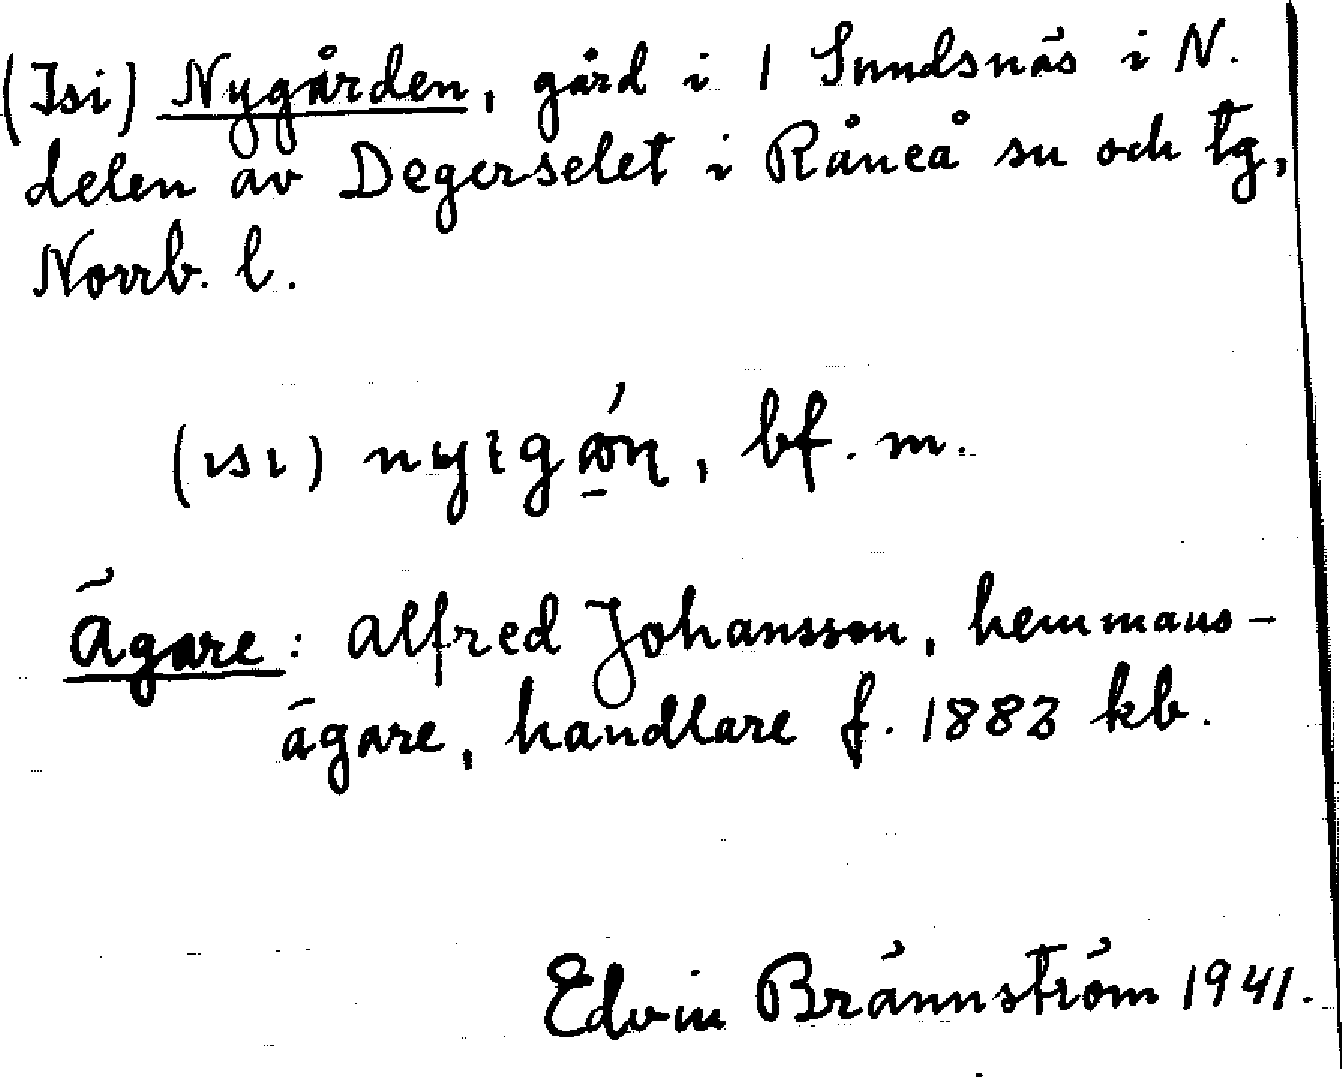 (Isi) Nygården, gård i 1 Sundsnäs i N.
delen av Degerselet i Råneå sn och tg,
Norrb. l.
(ısı) nyɩgǻ̱ɳ, bf. m.
Ägare: Alfred Johansson, hemmans-
ägare, handlare f. 1883 kb.
Edvin Brännström 1941.